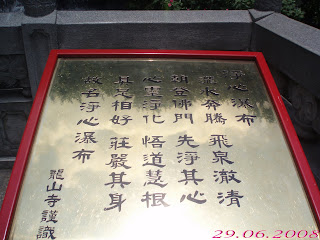 淨心瀑布
水奔騰 飛泉澈清
登佛門 先淨其心
心靈淨化 悟道慧根
具足相好 莊嚴其身
故名淨心瀑布
龍山寺謹識
29.06.2008